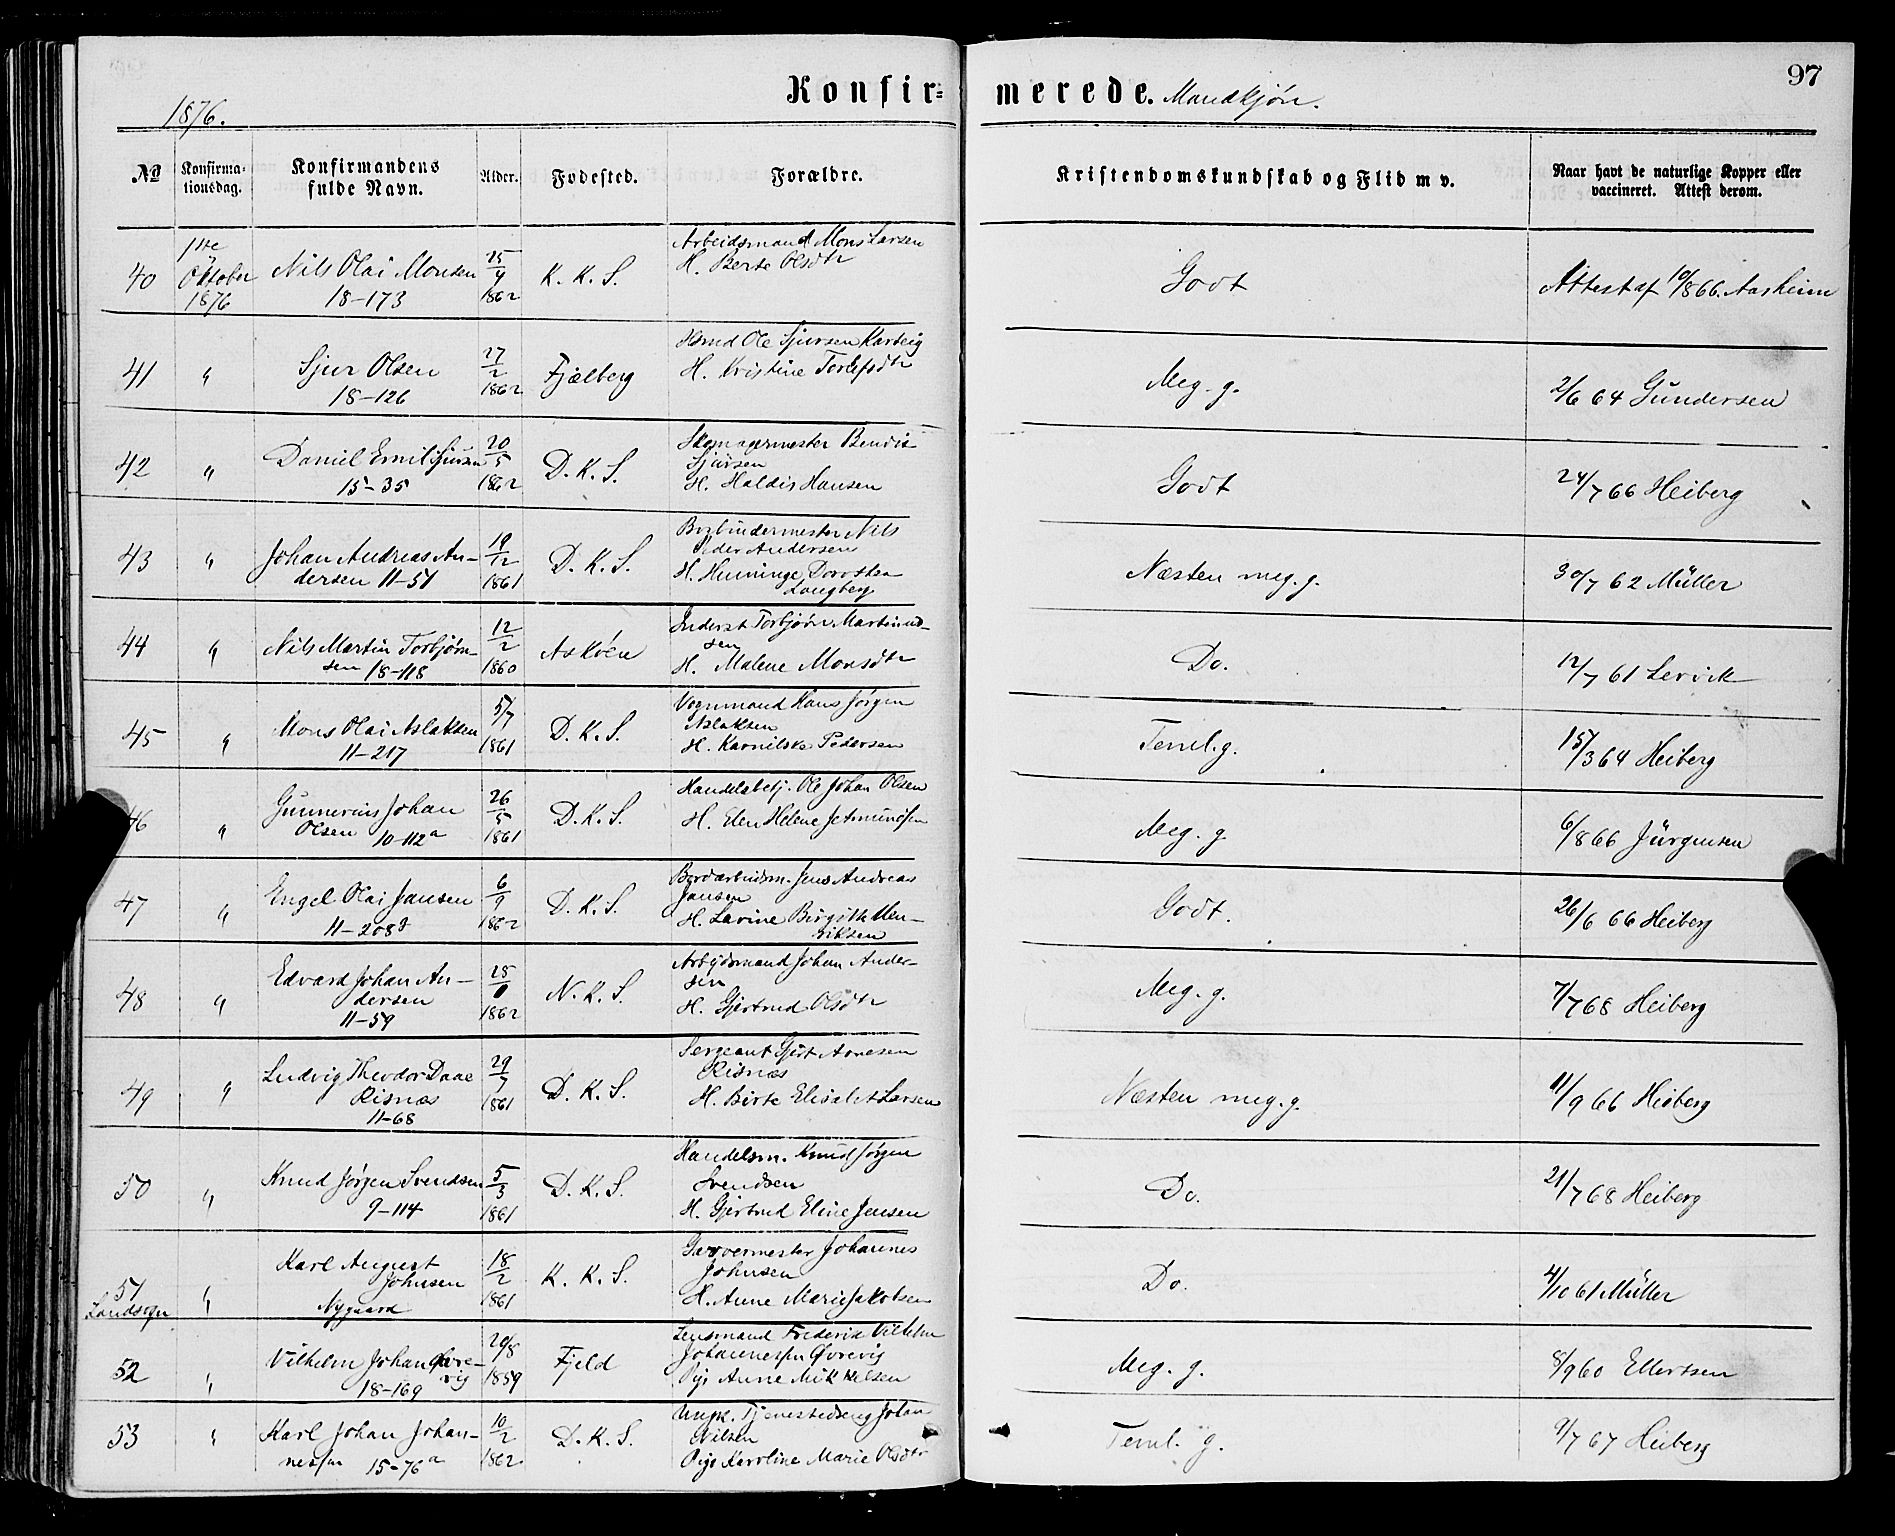 1876.
Konfirmerede. Mandkjøn.
97
№
Konfirmationsdag.
Konfirmandens fulde Navn.
Alder.
Fødested.
Forældre.
Kristendomskundskab og Flid m v.
Naar havt de naturlige Kopper eller vaccineret. Attest derom.
40
1ste Oktober 1876
Nils Olai Monsen
18-173
25/4 1862
K. K. S.
Arbeidsmand Mons Larsen
H. Berte Olsdtr
Godt
Attest af 10/8 66. Aasheim
41
"
Sjur Olsen
18-126
27/2 1862
Fjælberg
Hsmd Ole Sjursen
H. Kristine
Meg. g.
2/6 64 Gundersen
42
"
Daniel Emil Sjursen
15-35
20/5 1862
D. K. S.
Skomagermester Bendix
Sjursen
H. Haldis Hansen
Godt
24/7 66 Heiberg
43
"
Johan Andreas An-
dersen 11-51
19/12 1861
D. K. S.
Bogbindermester Nils
Peder Andersen
H. Henninge Dorothea
Langberg
Næsten meg. g.
30/7 62 Müller
44
"
Nils Martin Torbjørn-
sen 18-118
12/2 1860
Askøen
Inderst Torbjørn Martinus-
sen
H. Malene Monsdtr
Do.
12/7 61 Lervik
45
"
Mons Olai Aslaksen
11-217
5/7 1861
D. K. S.
Vognmand Hans Jørgen
Aslaksen
H. Karnilske Pedersen
Teml. g.
15/3 64 Heiberg
46
"
Gunnerius Johan
Olsen 10-112a
26/5 1861
D. K. S.
Handelsbetj. Ole Johan Olsen
H. Elen Helene
Meg. g.
6/8 66 Jürgensen
47
"
Engel Olai Jansen
11-208
6/9 1862
D. K. S.
Jens Andreas
Jansen
H. Lavine Birgitte Hen-
riksen
Godt.
26/6 66 Heiberg
48
"
Edvard Johan An-
dersen
11-59
1862
N. K. S.
Arbejdsmand Johan Ander-
sen
H. Gjertrud Olsdtr
Meg. g.
7/7 68 Heiberg
49
"
Ludvig Theodor Daae
Risnæs
11-68
29/7 1861
D. K. S.
Sergeant Gjert Arnesen
Risnæs
H. Birte Elisabet Larsen
Næsten meg. g.
11/9 66 Heiberg
50
"
Knud Jørgen Svendsen
9-114
5/3 1861
D. K. S.
Handelsm. Knud Jørgen
Svendsen
H. Gjertrud Eline Jensen
Do.
21/7 68 Heiberg
51
Landsogn
"
Karl August
Johnsen
Nygaard
18/2 1861
K. K. S.
Garvermester Johannes
Johnsen
H. Anne Marie Jakobsen
Do.
4/10 61 Müller
52
"
Vilhelm Johan Øvre-
vig
18-169
29/8 1859
Fjeld
Lensmand Frederik Vilhelm
Johannessen Øvrevig
Pige Anne Mikkelsen
Meg. g.
8/9 60 Ellertsen
53
"
Karl Johan Johan-
nessen 15-76a
10/2 1862
D. K. S.
Ungk. Tjenestedreng Johan
Nilsen
Pige Karoline Marie Olsdtr
Teml. g.
9/7 67 Heiberg